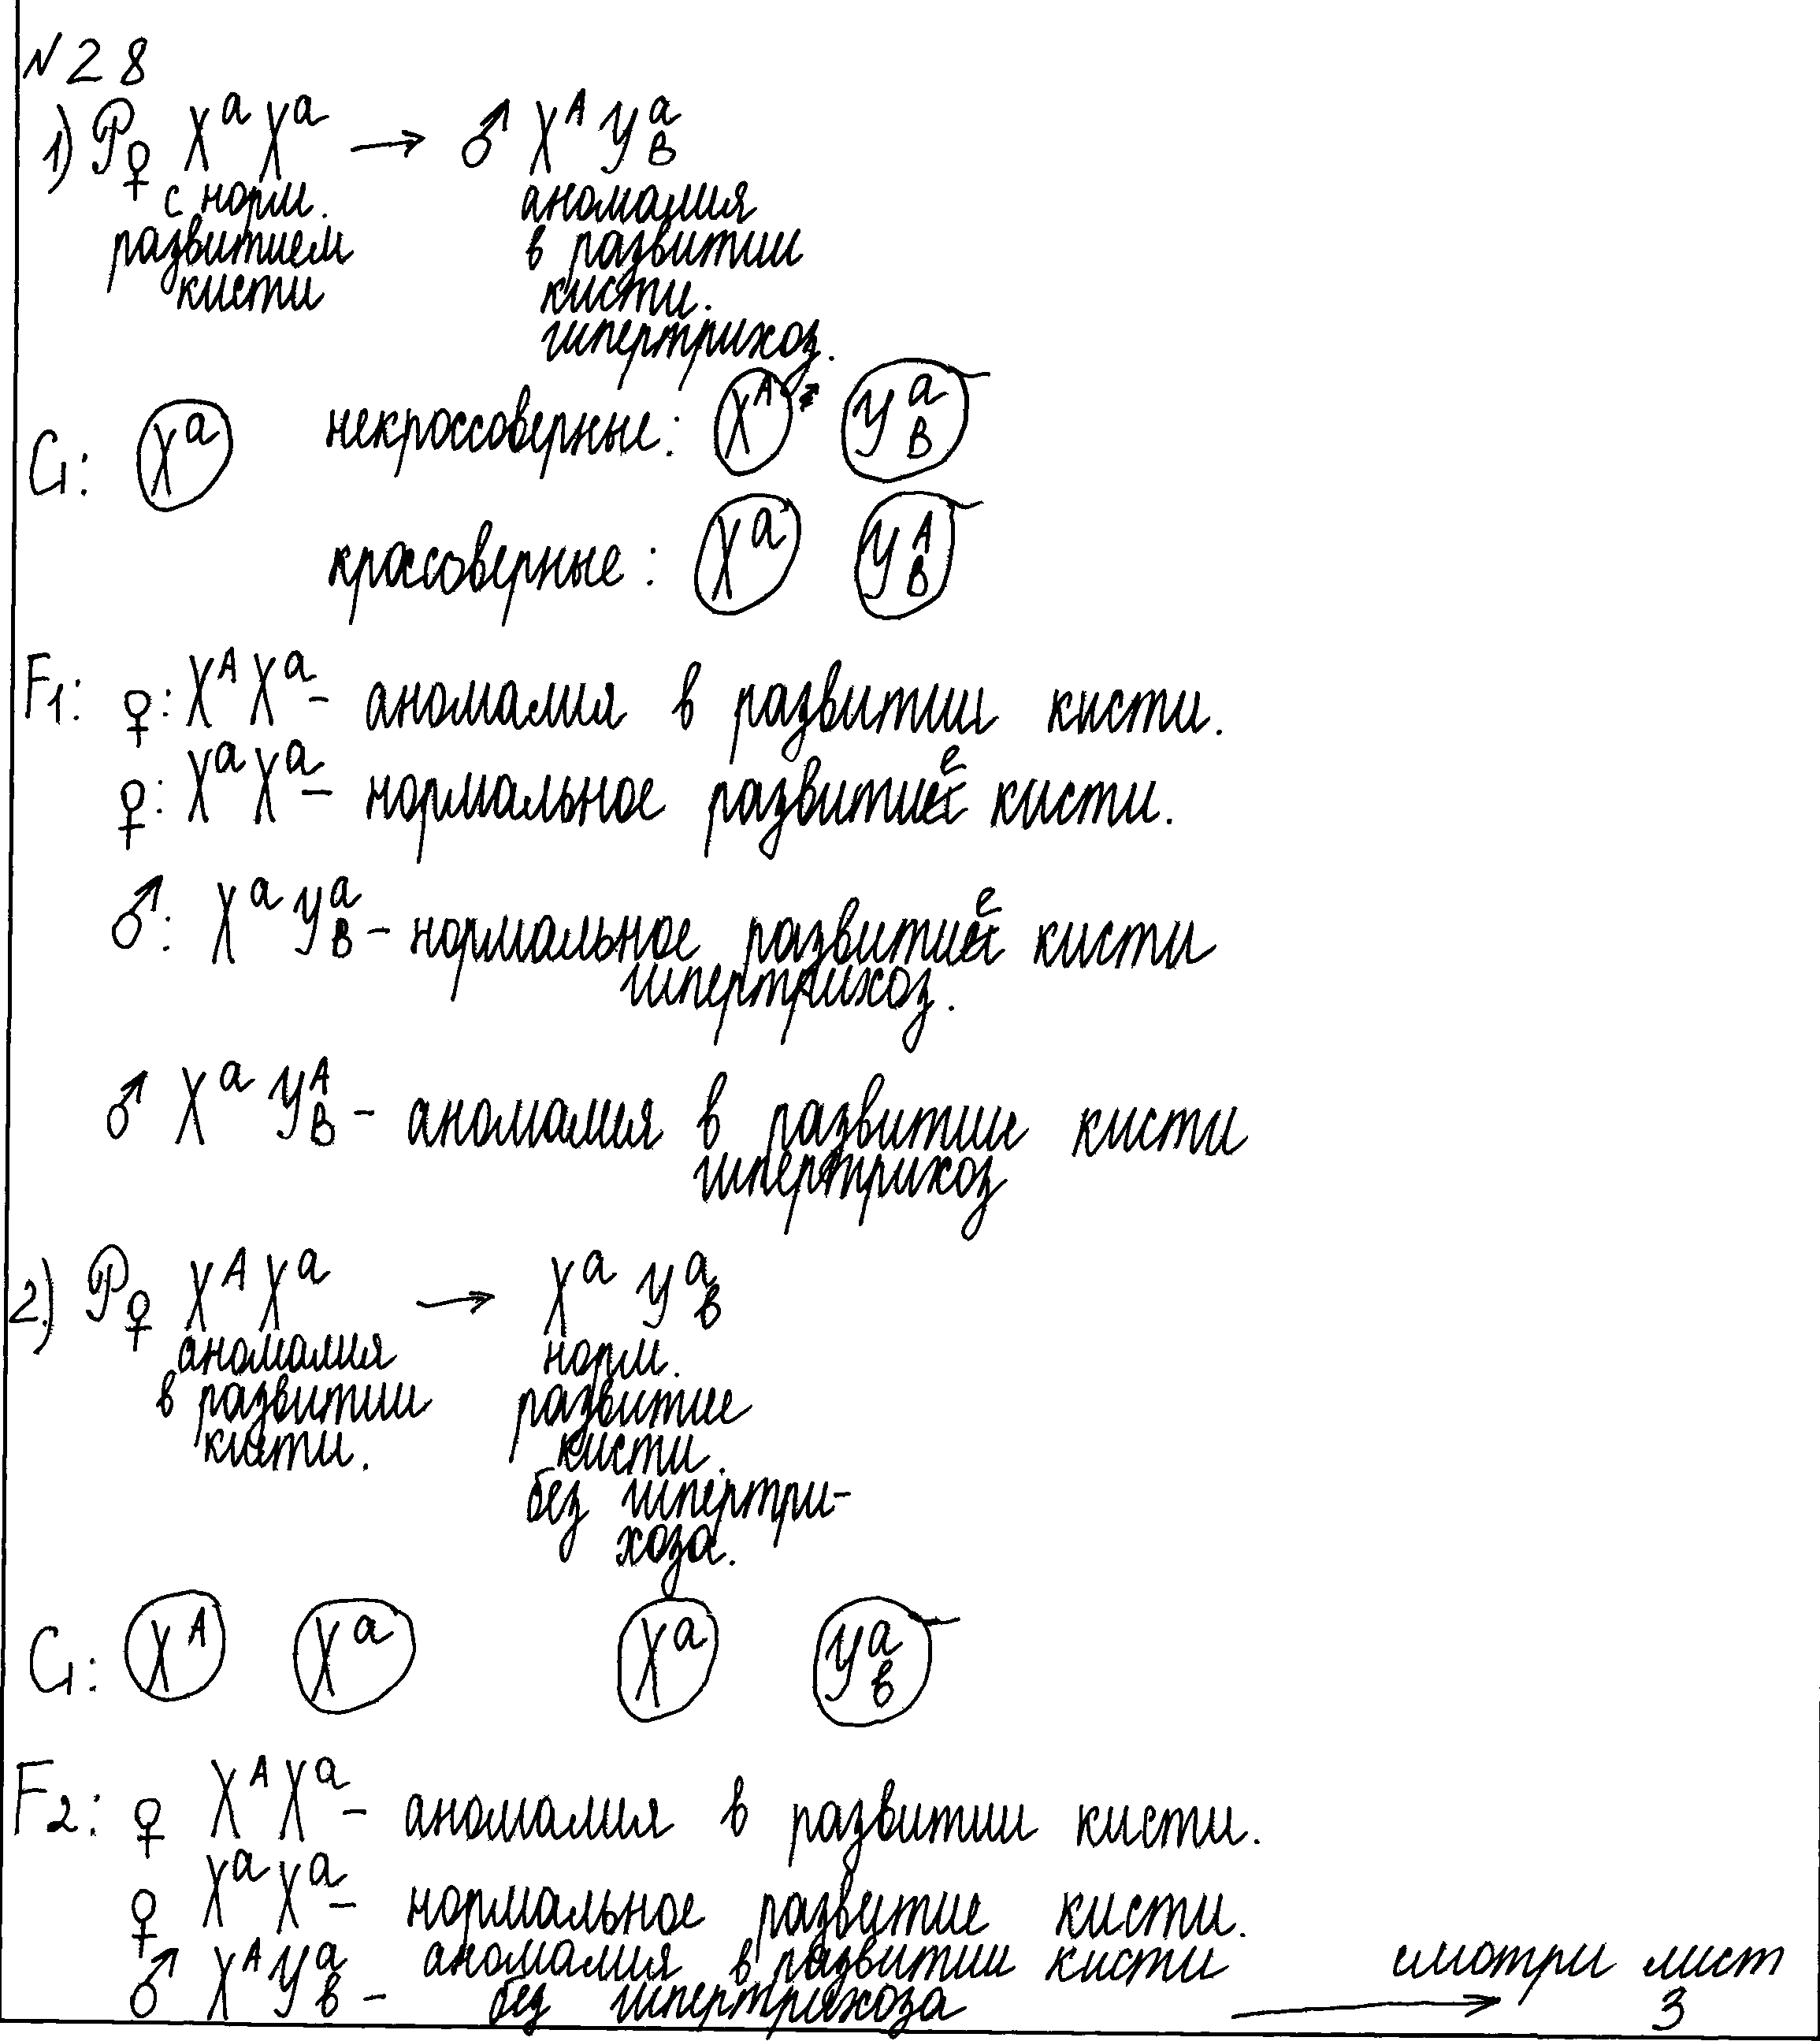 N 28
1) P ♀ XᵃXᵃ → ♂ XᴬYᵃB
с норм. аномалия
развитием в развитии
кисти кисти.
гипертрихоз.
G: Xᵃ некроссоверные: Xᴬ YᵃB
кроссоверные: Xᵃ YᴬB
F1: ♀: XᴬXᵃ - аномалия в развитии кисти.
♀: XᵃXᵃ - нормальное развитие кисти.
♂: XᵃYᵃB - нормальное развитие кисти
гипертрихоз.
♂ XᵃYᴬB - аномалия в развитие кисти
гипертрихоз
2.) P ♀ XᴬXᵃ → XᵃYᵃв
аномалия норм.
в развитии развитие
кисти. кисти.
без гипертри-
хоза.
G: Xᴬ Xᵃ Xᵃ Yᵃв
F2: ♀ XᴬXᵃ - аномалия в развитии кисти.
♀ XᵃXᵃ - нормальное развитие кисти.
♂ XᴬYᵃв - аномалия в развитии кисти смотри лист
без гипертрихоза → 3